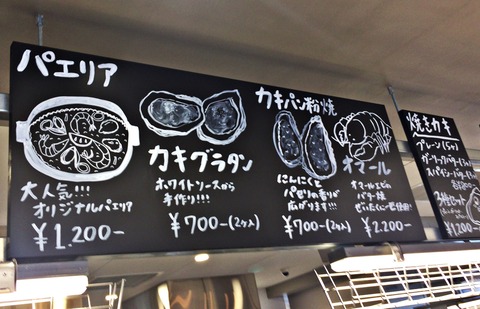 パエリア
大人気!!!
オリジナルパエリア
¥1,200-
カキグラタン
ホワイトソースから
手作り!!!
¥700-(2ケ入)
カキパン粉焼
にんにくと
パセリの香りが
広がります!!!
¥700-(2ケ入)
オマール
オマールエビの
バター焼
ぜいたくに一匹使用!
¥2,200-
焼きカキ
プレーン(5ケ)
ガーリックバター
スパイシーバター
¥1,200-